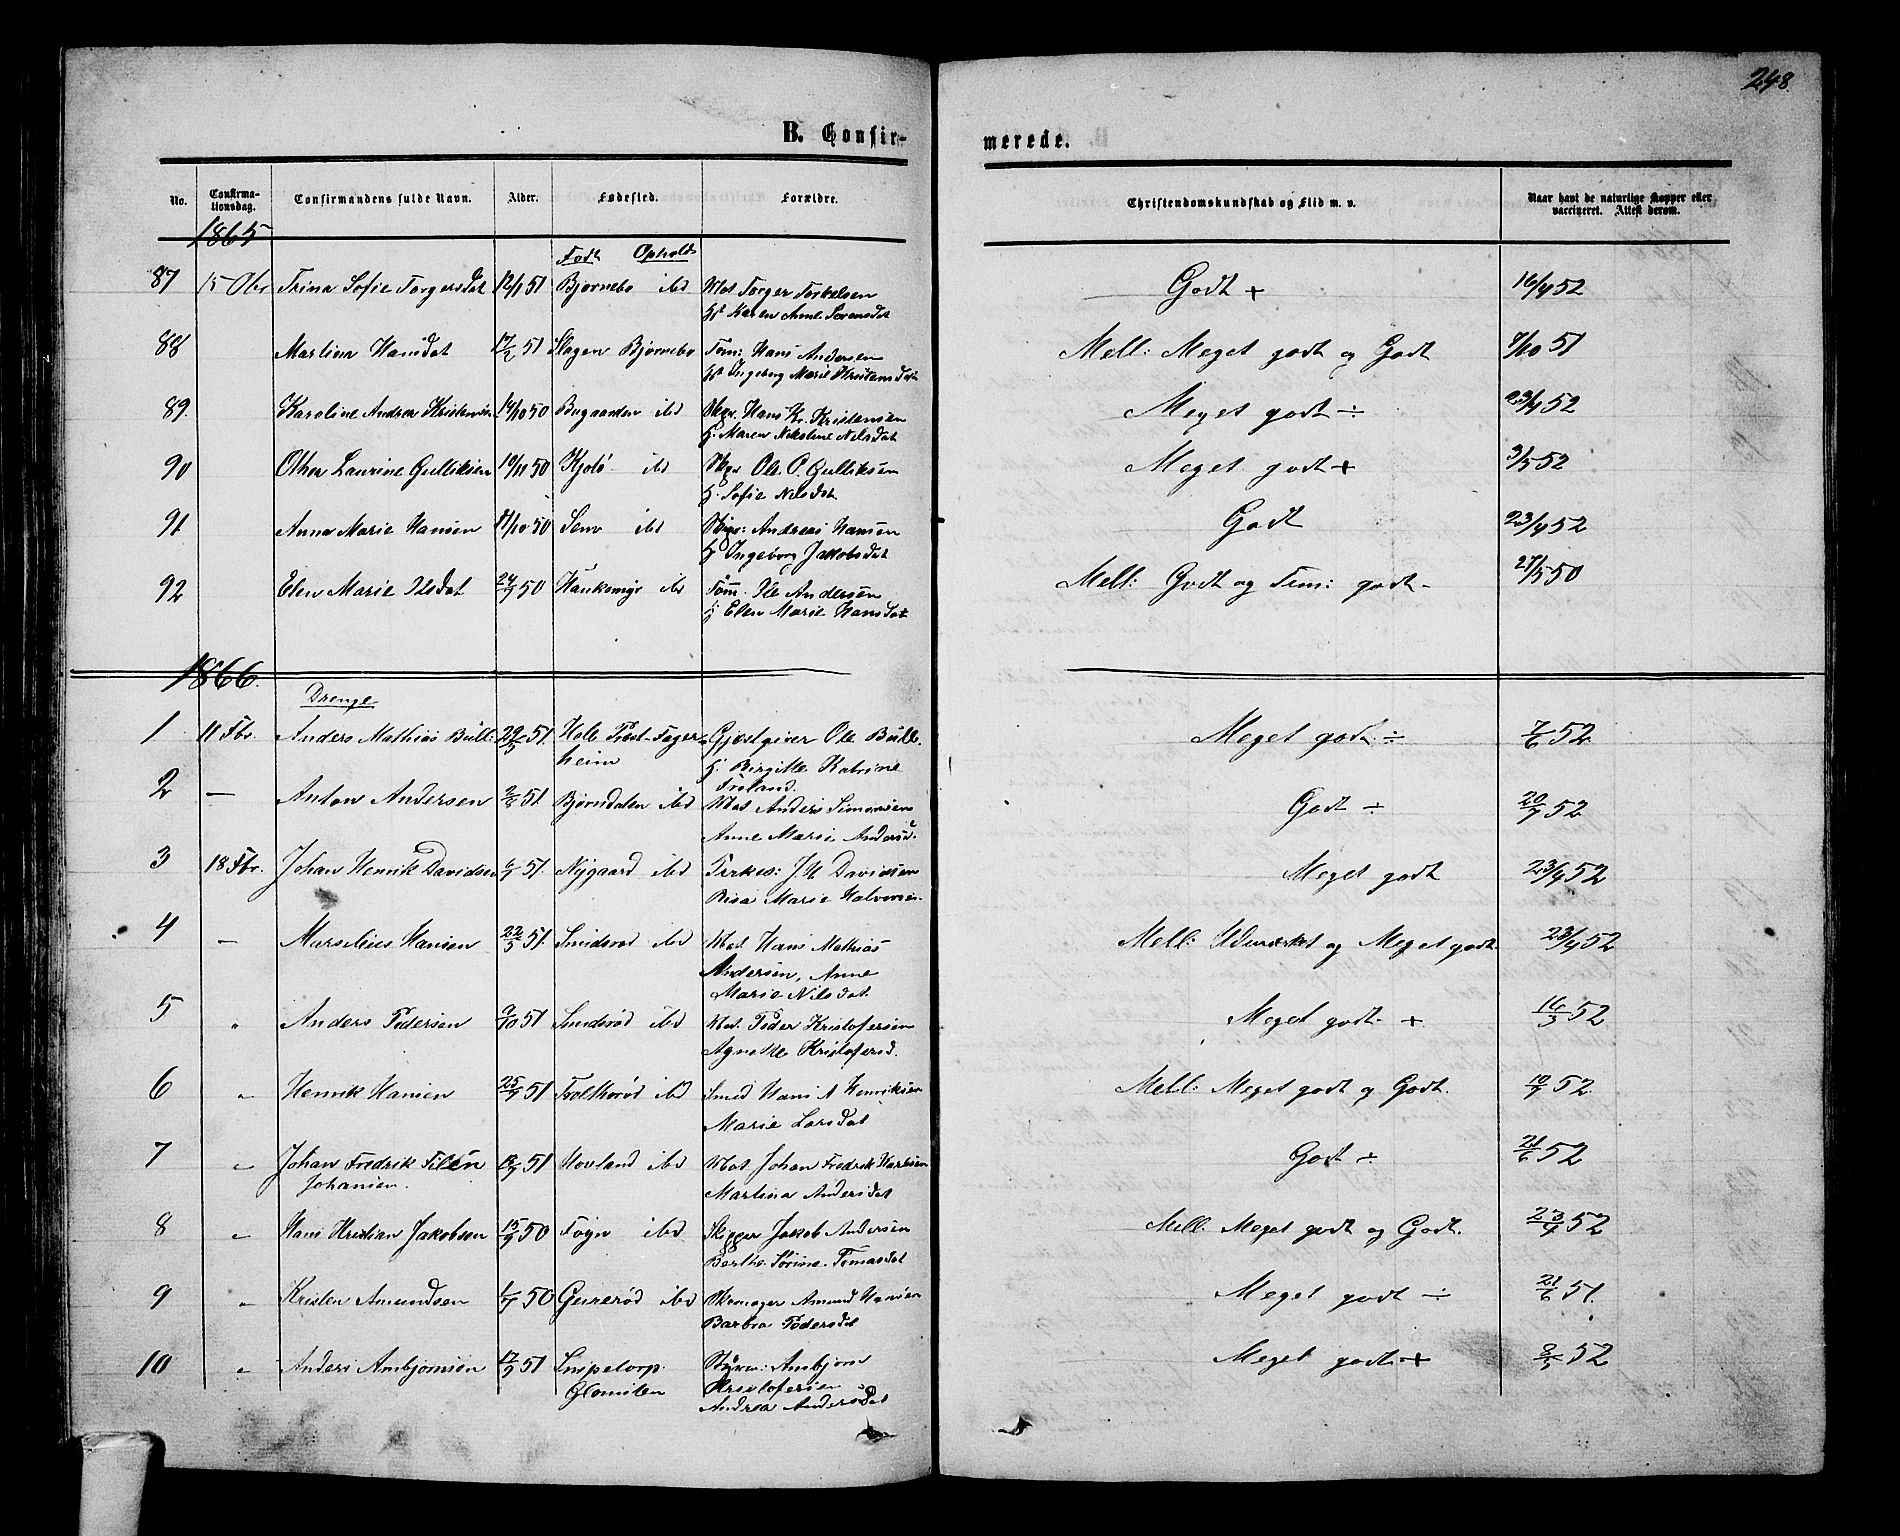 248
B. Confirmerede.
No. Confirmationsdag. Confirmandens fulde Navn. Alder. Fødested. Forældre. Christendomskundskab og Flid m. v. Naar havt de naturlige Kopper eller vaccineret. Attest derom.
1865
Født Ophold
87 15 Obr Trina Sofie Torgersdat 12/1 51 Bjørnebo ibd Mat Torger Torkelsen Godt + 16/4 52
H. Karen Anne Sørensdat
88 Martina Hansdat 17/2 51 Slagen Bjørnebo Tøm: Hans Andersen Mell: Meget godt og Godt 7/10 51
H. Ingeborg Marie Kristensdat
89. Karoline Andrea Kristensen 14/10 50 Bugaarden ibd Skpr. Hans Kr. Kristensen Meget godt ÷ 23/4 52
H. Maren Nikoline Nilsdat
90 Othea Laurine Gulliksen 10/11 50 Kjølø ibd Skpr Ole O. Gulliksen Meget godt + 3/5 52
H. Sofie Nilsdat
91 Anna Marie Hansen 11/10 50 Sem ibd Skpr: Andreas Hansen Godt 23/4 52
H Ingeborg Jakobsdat
92 Elen Marie Olsdat 24/9 50 Haukemyr ibd Tøm. Ole Andersen Mell: Godt og Tem: godt - 27/5 50
H Elen Marie Hansdat
1866.
Drenge
1 11 Fbr. Anders Mathias Bull: 29/5 51. Hole Præst- Fagerheim Gjæstgiver Ole Bull. Meget godt ÷ 7/6 52
H. Birgitte Katrine
Frøland.
2 — Anton Andersen 2/4 51 Bjørndalen ibd Mat Anders Simonsen Godt ÷ 20/7 52
Anne Marie Andersd.
3 18 Fbr. Johan Henrik Davidsen 6/7 51. Nygaard ibd J H Davidsen Meget godt 23/4 52
Marie Halvorsen.
4 — Marselius Hansen 22/5 51. Smidsrød ibd Mat Hans Mathias Mell: Udmærket og Meget godt. 23/4 52
Andersen, Anne
Marie Nilsdat.
5 " Anders Pedersen 9/10 51 Smidsrød ibd Mat. Peder Kristofersen Meget godt + 16/3 52
Agnethe Kristofersd.
6 " Henrik Hansen 25/7 51 ibd Smed Hans A Henriksen Mell: Meget godt og Godt. 10/7 52
Marie Larsdat
7 " Johan Fredrik 51 Hovland ibd Mat Johan Fredrik Karlsen Godt ÷ 21/6 52
Johansen. Martina Andersdat
8 " Hans Kristian Jakobsen 15/9 50 Føyn ibd Skipper Jakob Andersen Mell: Meget godt og Godt. 23/4 52
Berthe Sørine Tomasdat
9 " Kristen Amundsen 1/7 50 Gurerød ibd Skomager Amund Hansen Meget godt ÷ 21/6 51.
Barbra Pedersdat
10 " Anders Ambjørnsen 17/9 51 Snipetorp Ambjørn Meget godt + 2/5 52
Kristofersen
Andrea Andersdat